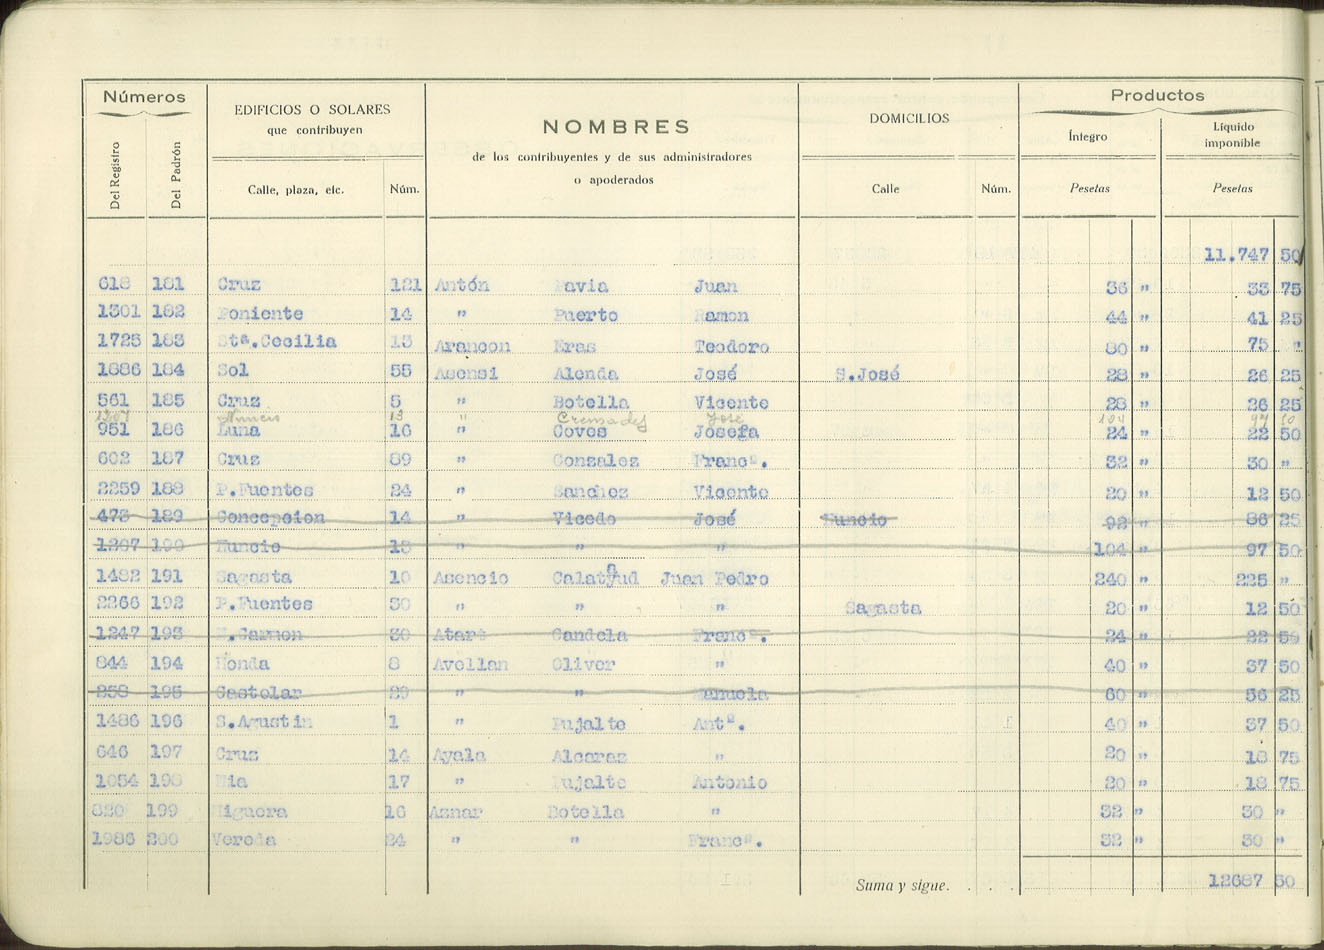 Números
EDIFICIOS O SOLARES
que contribuyen
NOMBRES
de los contribuyentes y de sus administradores
o apoderados
DOMICILIOS
Productos
Íntegro
Líquido
imponible
Del Registro
Del Padrón
Calle, plaza, etc.
Núm.
Calle
Núm.
Pesetas
Pesetas
11.747 50
618 181 Cruz 121 Antón Pavia Juan 36 " 33 75
1301 182 Poniente 14 " Puerto Ramon 44 " 41 25
1725 183 Stª.Cecilia 13 Arancon Eras Teodoro 80 " 75 "
1686 184 Sol 55 Asensi Alenda José S.José 28 " 26 25
561 185 Cruz 5 " Botella Vicente 28 " 26 25
1307 Nuncio 13 " Cremades José 104 97 50
951 186 Luna 16 " Coves Josefa 24 " 22 50
602 187 Cruz 89 " Gonzalez Francº. 32 " 30 "
2259 188 P.Fuentes 24 " Sanchez Vicente 20 " 12 50
473 189 Concepcion 14 " Vicedo José Nuncio 92 " 86 25
1307 190 Nuncio 13 " " " 104 " 97 50
1482 191 Sagasta 10 Asencio Calatayud Juan Pedro 240 " 225 "
2266 192 P.Fuentes 30 " " " Sagasta 20 " 12 50
1247 193 N.Carmen 30 Atart Candela Francº. 24 " 22 50
844 194 Honda 8 Avellan Oliver " 40 " 37 50
258 195 Castelar 29 " " Manuela 60 " 56 25
1486 196 S.Agustin 1 " Pujalte Antº. 40 " 37 50
646 197 Cruz 14 Ayala Alcaraz " 20 " 18 75
1054 198 Mia 17 " Pujalte Antonio 20 " 18 75
820 199 Higuera 16 Aznar Botella " 32 " 30 "
1986 200 Vereda 24 " " Francº. 32 " 30 "
Suma y sigue. . . . 12687 50